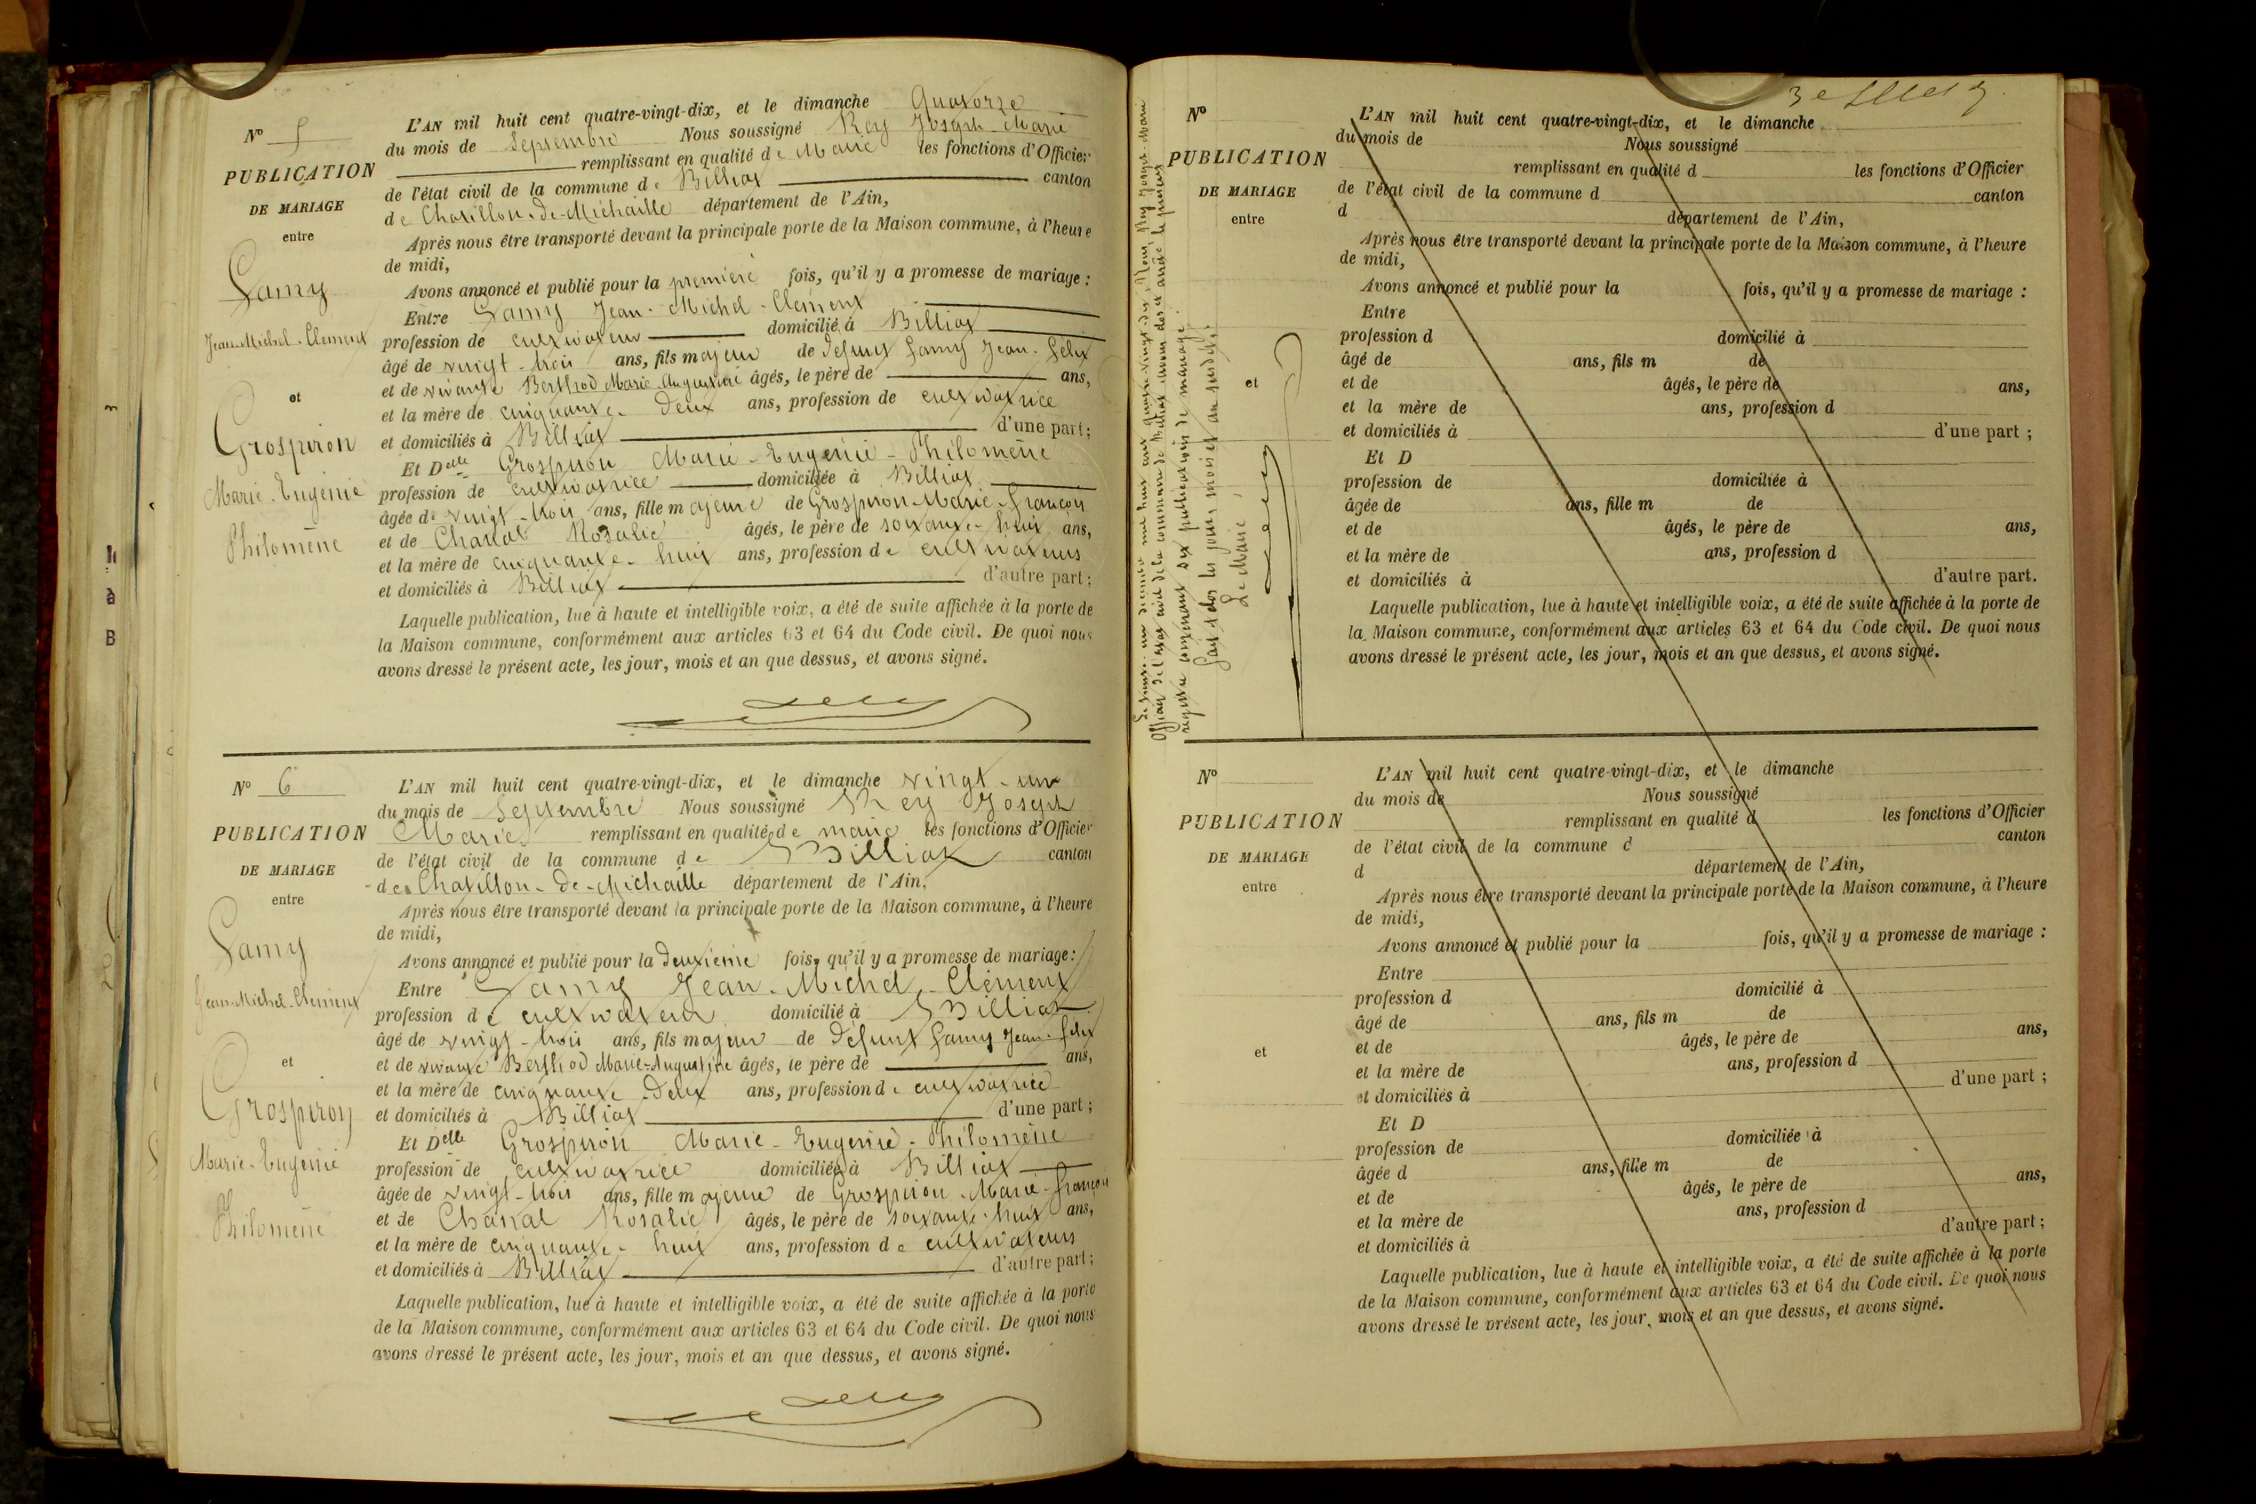 N° 5
PUBLICATION
DE MARIAGE
entre
Lamy
Jean-Michel-Clement
et
Grospiron
Marie-Eugénie
Philomène
L'AN mil huit cent quatre-vingt-dix, et le dimanche Quatorze
du mois de Septembre Nous soussigné Rey Joseph-Marie
remplissant en qualité de Maire les fonctions d'Officier
de l'état civil de la commune de Billiat canton
de Chatillon-de-Michaille département de l'Ain,
Après nous être transporté devant la principale porte de la Maison commune, à l'heure
de midi,
Avons annoncé et publié pour la première fois, qu'il y a promesse de mariage :
Entre Lamy Jean-Michel-Clement
profession de cultivateur domicilié à Billiat
âgé de vingt-trois ans, fils majeur de defunt Lamy Jean-Felix
et de vivante Berthod Marie-Augustine âgés, le père de ans,
et la mère de cinquante-deux ans, profession de cultivatrice
et domiciliés à Billiat d'une part ;
Et Delle Grospiron Marie-Eugénie-Philomène
profession de cultivatrice domiciliée à Billiat
âgée de vingt-trois ans, fille majeure de Grospiron-Marie-François
et de Chanal Rosalie âgés, le père de soixante-huit ans,
et la mère de cinquante-huit ans, profession de cultivateurs
et domiciliés à Billiat d'autre part ;
Laquelle publication, lue à haute et intelligible voix, a été de suite affichée à la porte de
la Maison commune, conformément aux articles 63 et 64 du Code civil. De quoi nous
avons dressé le présent acte, les jour, mois et an que dessus, et avons signé.
N° 6
PUBLICATION
DE MARIAGE
entre
Lamy
Jean-Michel-Clement
et
Grospiron
Marie-Eugénie
Philomène
L'AN mil huit cent quatre-vingt-dix, et le dimanche vingt-un
du mois de Septembre Nous soussigné Rey Joseph
Marie remplissant en qualité de maire les fonctions d'Officier
de l'état civil de la commune de Billiat canton
de Chatillon-de-Michaille département de l'Ain,
Après nous être transporté devant la principale porte de la Maison commune, à l'heure
de midi,
Avons annoncé et publié pour la deuxième fois, qu'il y a promesse de mariage :
Entre Lamy Jean-Michel-Clément
profession de cultivateur domicilié à Billiat
âgé de vingt-trois ans, fils majeur de defunt Lamy Jean-Felix
et de vivante Berthod Marie-Augustine âgés, le père de ans,
et la mère de cinquante-deux ans, profession de cultivatrice
et domiciliés à Billiat d'une part ;
Et Delle Grospiron Marie-Eugénie-Philomène
profession de cultivatrice domiciliée à Billiat
âgée de vingt-trois ans, fille majeure de Grospiron-Marie-François
et de Chanal Rosalie âgés, le père de soixante-huit ans,
et la mère de cinquante-huit ans, profession de cultivateurs
et domiciliés à Billiat d'autre part ;
Laquelle publication, lue à haute et intelligible voix, a été de suite affichée à la porte
de la Maison commune, conformément aux articles 63 et 64 du Code civil. De quoi nous
avons dressé le présent acte, les jour, mois et an que dessus, et avons signé.
Le trente-un décembre mil huit cent quatre-vingt-dix, Nous, Rey Joseph-Marie
Officier de l'état civil de la commune de Billiat avons clos et arrêté le présent
registre contenant six publications de mariage.
Fait et clos les jours, mois et an susdits.
Le Maire,
N°
PUBLICATION
DE MARIAGE
entre
et
L'AN mil huit cent quatre-vingt-dix, et le dimanche
du mois de Nous soussigné
remplissant en qualité d les fonctions d'Officier
de l'état civil de la commune d canton
d département de l'Ain,
Après nous être transporté devant la principale porte de la Maison commune, à l'heure
de midi,
Avons annoncé et publié pour la fois, qu'il y a promesse de mariage :
Entre
profession d domicilié à
âgé de ans, fils m de
et de âgés, le père de ans,
et la mère de ans, profession d
et domiciliés à d'une part ;
Et D
profession de domiciliée à
âgée de ans, fille m de
et de âgés, le père de ans,
et la mère de ans, profession d
et domiciliés à d'autre part.
Laquelle publication, lue à haute et intelligible voix, a été de suite affichée à la porte de
la Maison commune, conformément aux articles 63 et 64 du Code civil. De quoi nous
avons dressé le présent acte, les jour, mois et an que dessus, et avons signé.
N°
PUBLICATION
DE MARIAGE
entre
et
L'AN mil huit cent quatre-vingt-dix, et le dimanche
du mois de Nous soussigné
remplissant en qualité d les fonctions d'Officier
de l'état civil de la commune d canton
d département de l'Ain,
Après nous être transporté devant la principale porte de la Maison commune, à l'heure
de midi,
Avons annoncé et publié pour la fois, qu'il y a promesse de mariage :
Entre
profession d domicilié à
âgé de ans, fils m de
et de âgés, le père de ans,
et la mère de ans, profession d
et domiciliés à d'une part ;
Et D
profession de domiciliée à
âgée d ans, fille m de
et de âgés, le père de ans,
et la mère de ans, profession d
et domiciliés à d'autre part ;
Laquelle publication, lue à haute et intelligible voix, a été de suite affichée à la porte
de la Maison commune, conformément aux articles 63 et 64 du Code civil. De quoi nous
avons dressé le présent acte, les jour, mois et an que dessus, et avons signé.